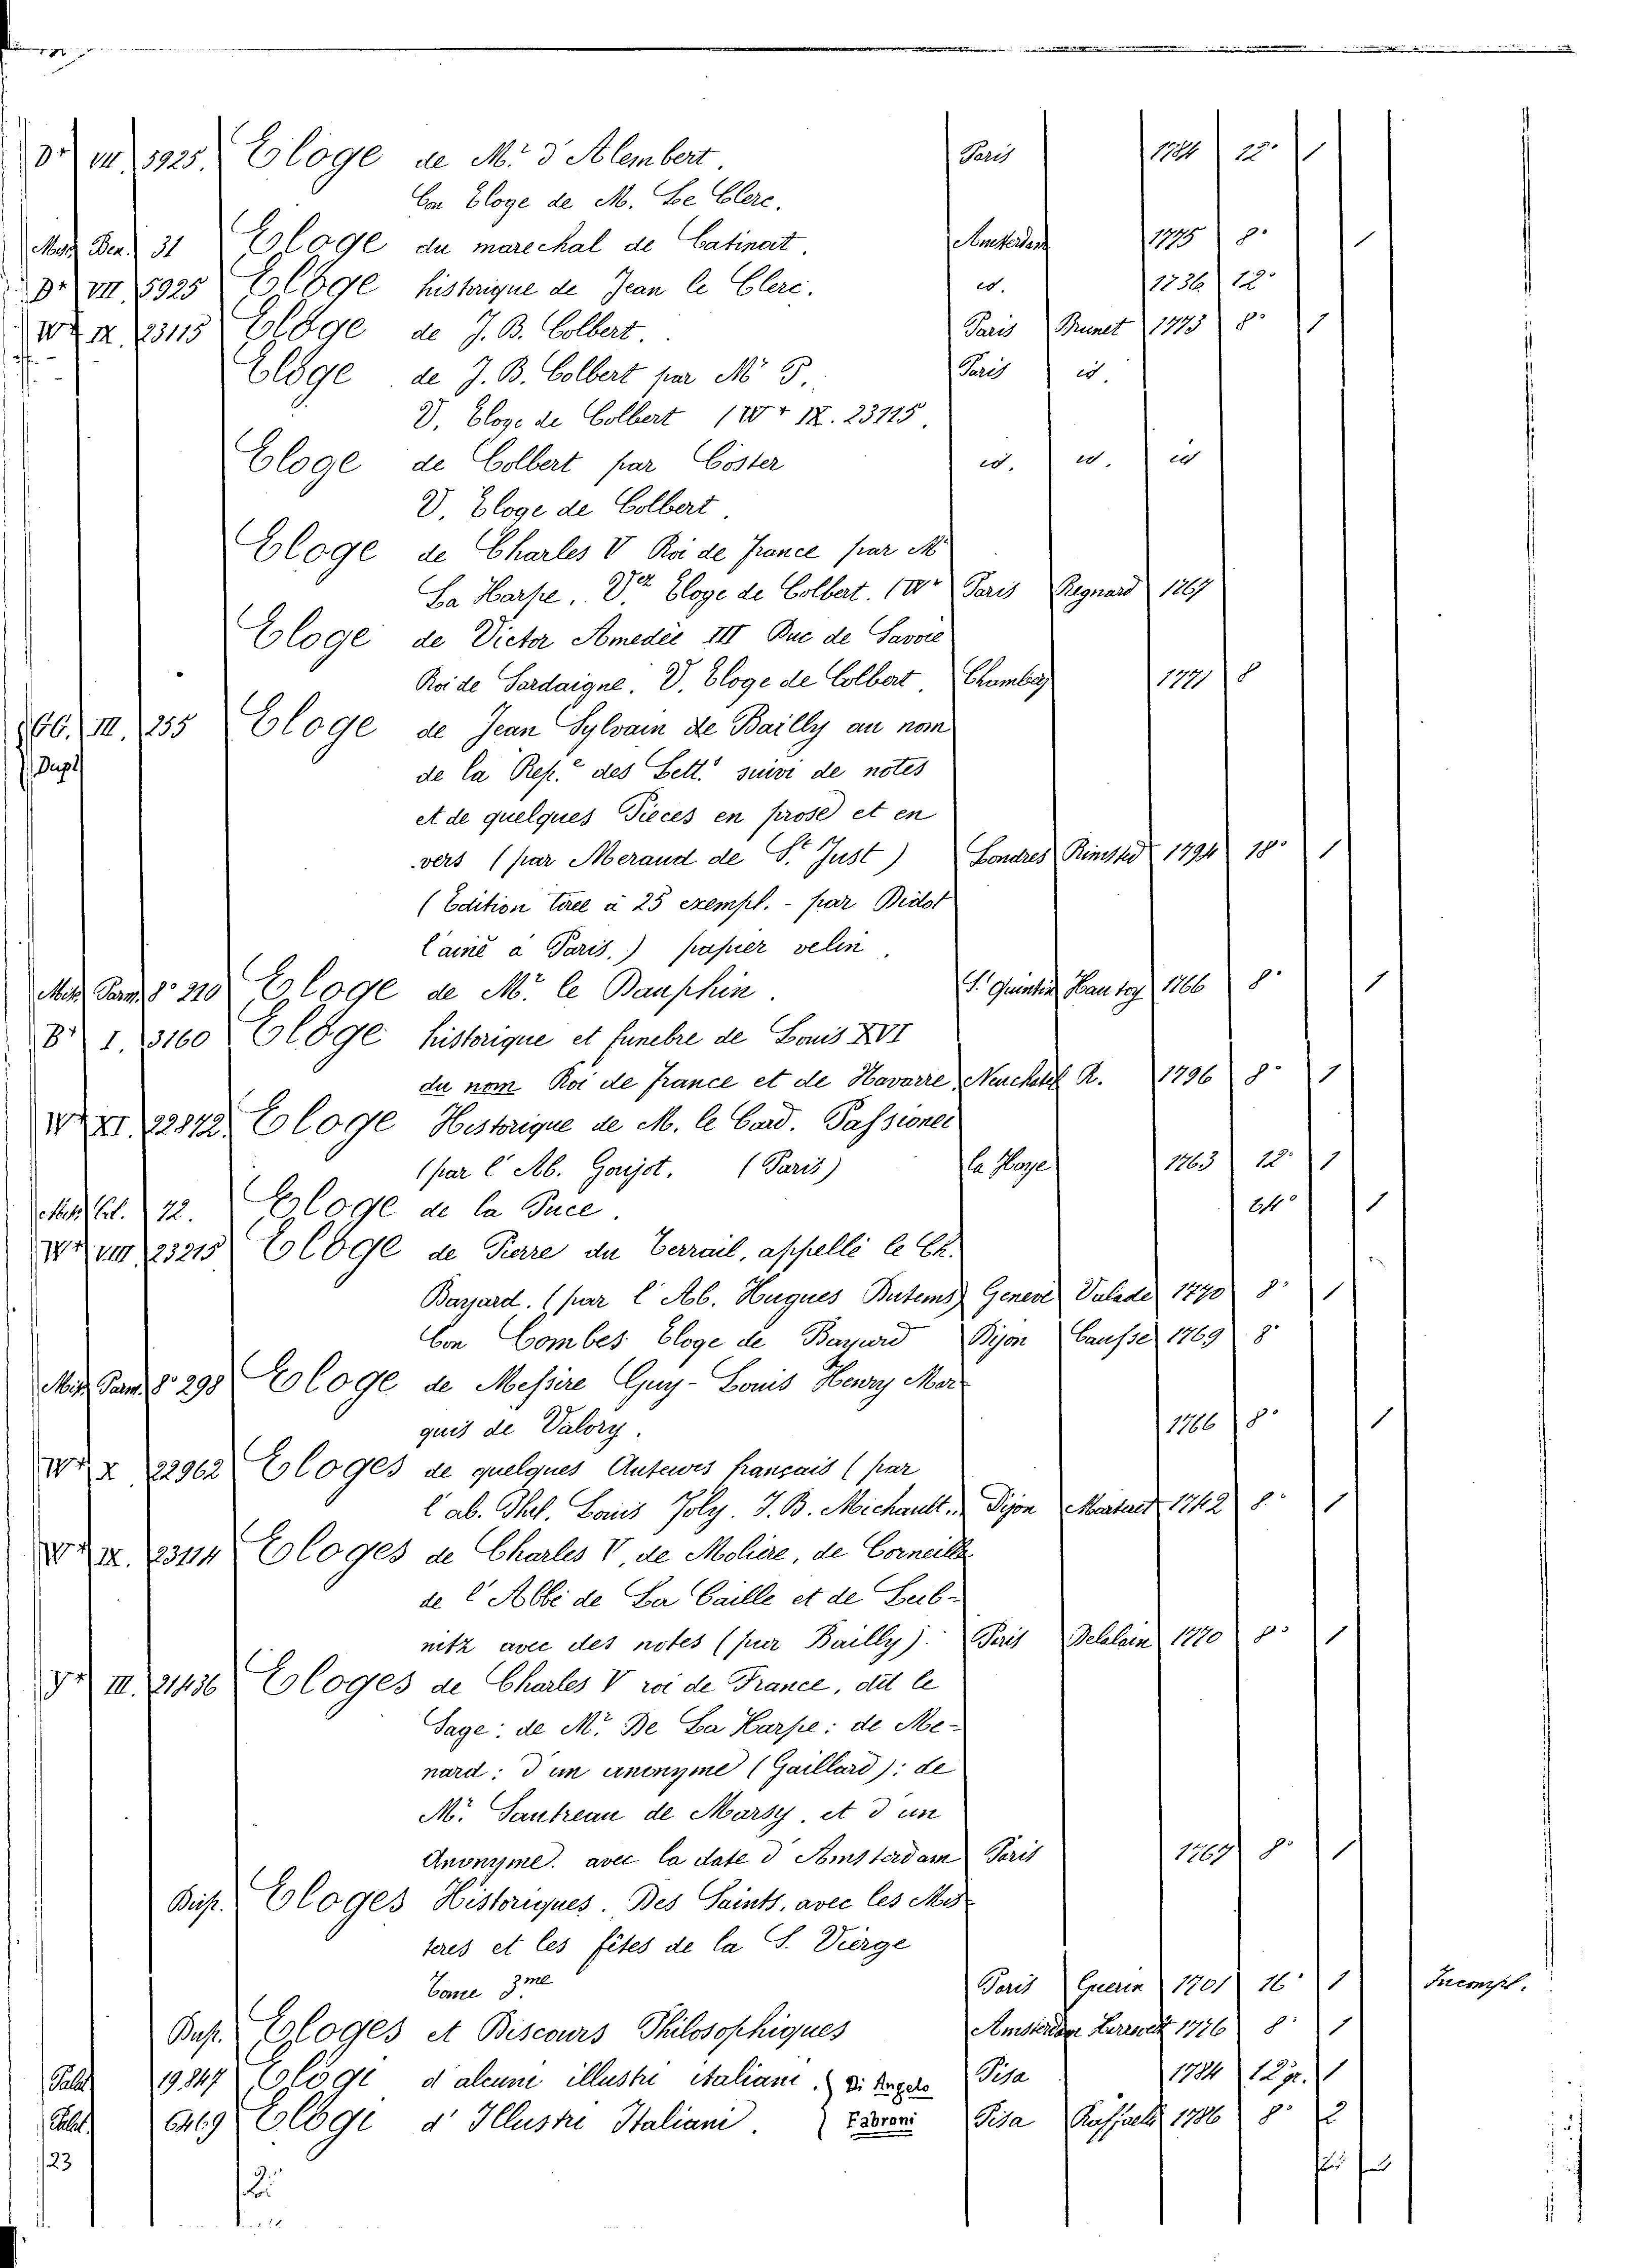 D.r VII. 5925. Eloge de M.r d'Alembert. Paris 1784 12.o 1
Con Eloge de M. Le Clerc.
Misc. Ben. 31 Eloge du marechal de Catinat. Amsterdam 1775 8.o 1
D.r VII 5925 Eloge historique de Jean le Clerc. id. 1736 12.o
W.r IX. 23115 Eloge de J. B. Colbert. Paris Brunet 1773 8.o 1
Eloge de J. B. Colbert par M.r P. Paris id.
V. Eloge de Colbert (W.r IX. 23115.
Eloge de Colbert par Coster id. id. id
V. Eloge de Colbert.
Eloge de Charles V Roi de France par M.r
La Harpe. V. Eloge de Colbert. (W.r Paris Regnard 1767
Eloge de Victor Amedée III Duc de Savoie
Roi de Sardaigne. V. Eloge de Colbert. Chambery 1771 8
III. 255 Eloge de Jean Sylvain de Bailly au nom
Dupl de la Rep.e des Lett. suivi de notes
et de quelques Pieces en prose et en
vers (par Merand de S.t Just) Londres 1794 18.o 1
(Edition tirée à 25 exempl. - par Didot
l'ainé à Paris.) papier velin.
Misc. Parm. 8.o 210 Eloge de M.r le Dauphin. S. Quintin Hautoy 1766 8.o 1
B.r I. 3160 Eloge historique et funebre de Louis XVI
du nom Roi de france et de Navarre Neuchatel R. 1796 8.o 1
W.r XI. 22872. Eloge Historique de M. le Card. Passionei
(par l'Ab. Goujet. (Paris) la Haye 1763 12.o 1
Misc. 72. Eloge de la Puce. 24.o 1
W.r VIII 23215 Eloge de Pierre du Terrail, appellé le Ch.
Bayard. (par l'Ab. Hugues Butems) Geneve Valade 1770 8.o 1
Con Combes Eloge de Bayard Dijon Causse 1769 8.o
Misc. Parm. 8.o 298 Eloge de Messire Guy-Louis Henry Mar-
quis de Valory. 1766 8.o 1
W.r X 22962 Eloges de quelques Auteurs français (par
l'ab. Phil. Louis Joly. J. B. Michault. Dijon Marteret 1742 8.o 1
W.r IX. 23114 Eloges de Charles V, de Moliere, de Corneille
de l'Abbé de La Caille et de Leib-
nitz avec des notes (par Bailly). Paris Delalain 1770 8.o 1
Y.r III. 21436 Eloges de Charles V roi de France, dit le
Sage: de M.r De La Harpe: de Me-
nard: d'un anonyme (Gaillard): de
M.r Sautreau de Marsy, et d'un
Anonyme. avec la date d'Amsterdam Paris 1767 8.o 1
Eloges Historiques. Des Saints, avec les Mis-
teres et les fêtes de la S. Vierge
Tome 3.me Paris Guerin 1701 16.o 1 Incompl.
Eloges et Discours Philosophiques Amsterdam 1776 8.o 1
Palat 19847 Elogi d'alcuni illustri italiani. Di Angelo Pisa 1784 12 gr. 1
Palat. 6469 Elogi d'Illustri Italiani. Fabroni Pisa Raffaelli 1786 8.o 2
23
2.